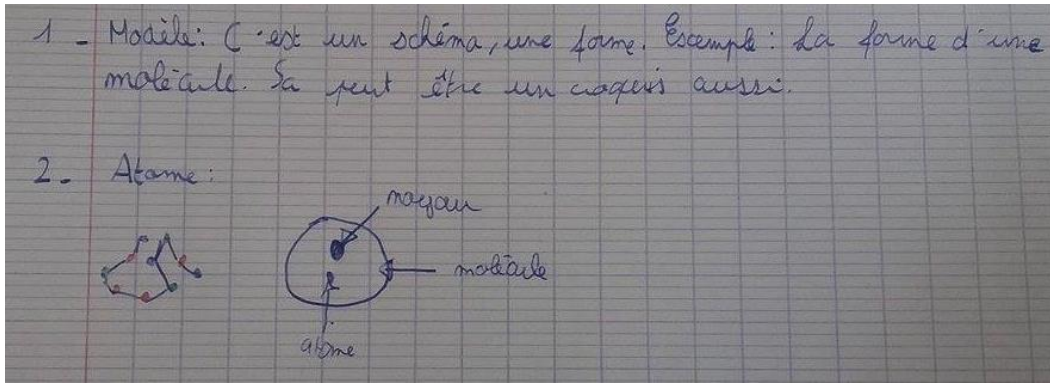 1 - Modèle: C'est un schéma, une forme. Exemple: La forme d'une
molécule. Sa peut être un croquis aussi.
2 - Atome:
noyau
molécule
atome